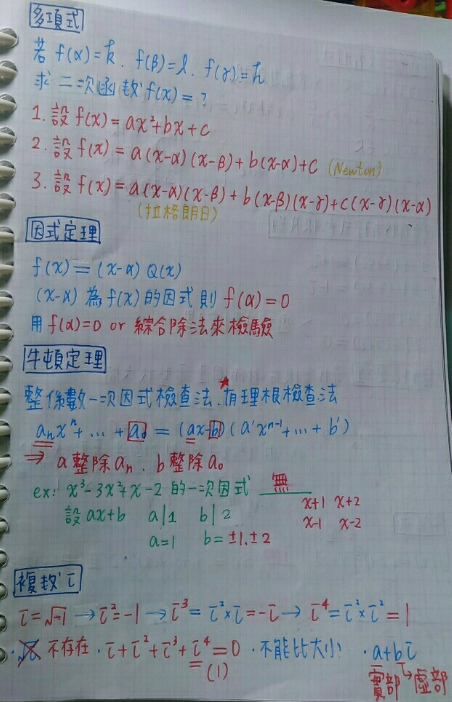 多項式
若 f(α)=k . f(β)=l . f(γ)=h
求二次函數 f(x)=?
1. 設 f(x)=ax²+bx+c
2. 設 f(x)=a(x-α)(x-β)+b(x-α)+c (Newton)
3. 設 f(x)=a(x-α)(x-β)+b(x-β)(x-γ)+c(x-γ)(x-α)
(拉格朗日)
因式定理
f(x)=(x-α)Q(x)
(x-α)為f(x)的因式則 f(α)=0
用 f(α)=0 or 綜合除法來檢驗
牛頓定理
整係數一次因式檢查法.★有理根檢查法
aₙxⁿ+…+a₀=(ax-b)(a'xⁿ⁻¹+…+b')
⇒ a整除aₙ . b整除a₀
ex: x³-3x²+x-2 的一次因式 無
設 ax+b a|1 b|2 x+1 x+2
a=1 b=±1,±2 x-1 x-2
複數 i
i=√-1 → i²=-1 → i³=i²×i=-i → i⁴=i²×i²=1
·√i 不存在 · i+i²+i³+i⁴=0 · 不能比大小 · a+bi
(1) 實部 虛部